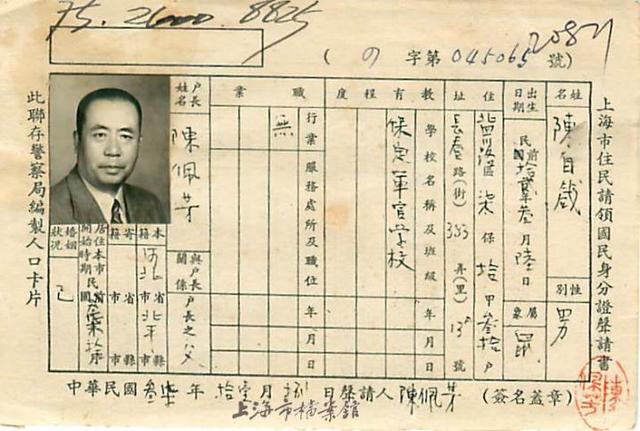 75.2600.8825
2087
(の)字第045065號
上海市住民請領國民身分證聲請書
姓名 陳自
性別 男
出生日期 民國前拾貳年叁月陸日
屬象 鼠
住址 區 柒保 拾甲 叁拾戶
長春路(街) 弄(里) 號
教育程度
學校名稱及班級 年 月
保定軍官學校
職業
行業 服務處所及職位 年 月 日
無
戶長姓名 陳佩芳
與戶長關係 戶長之父
本籍 河北省市 北平縣市
寄籍 省市 縣市
居住本市開始時期 民國
婚姻狀況 已
此聯存警察局編製人口卡片
中華民國叁柒年 拾壹月 日聲請人 陳佩芳 (簽名蓋章)
上海市檔案館